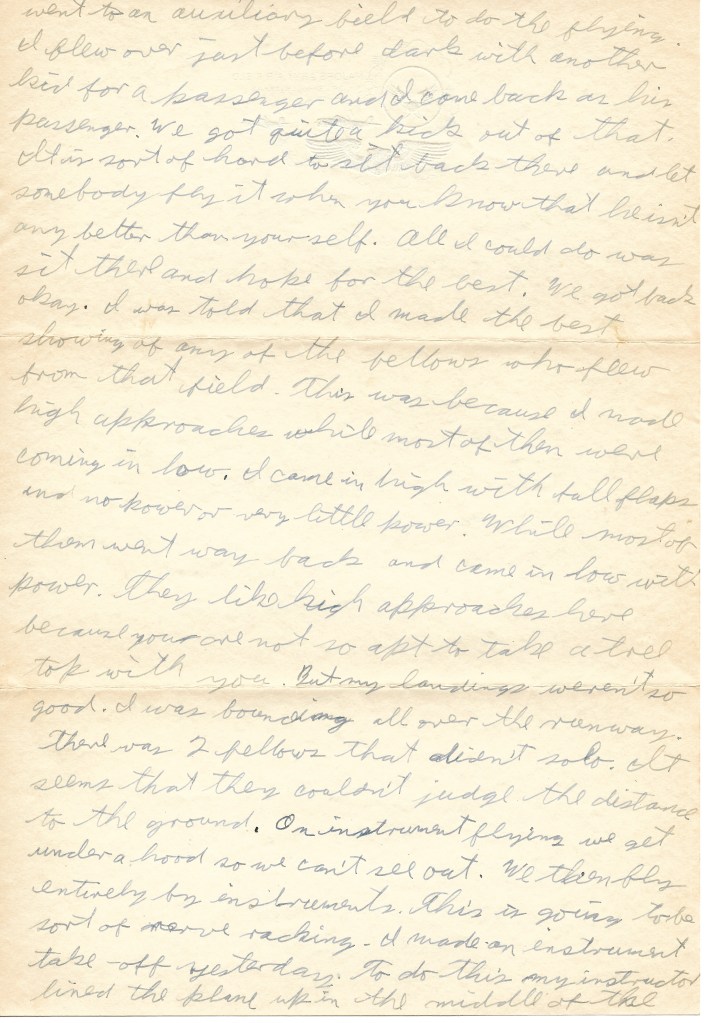 went to an auxiliary field to do the flying.
I flew over just before dark with another
kid for a passenger and I come back as his
passenger. We got quite a kick out of that.
It is sort of hard to sit back there and let
somebody fly it when you know that he isn't
any better than yourself. All I could do was
sit there and hope for the best. We got back
okay. I was told that I made the best
showing of any of the fellows who flew
from that field. This was because I made
high approaches while most of them were
coming in low. I came in high with full flaps
and no power or very little power. While most of
them went way back and came in low with
power. They like high approaches here
because you are not so apt to take a tree
top with you. But my landings weren't so
good. I was bouncing all over the runway.
There was 2 fellows that didn't solo. It
seems that they couldn't judge the distance
to the ground. On instrument flying we get
under a hood so we can't see out. We then fly
entirely by instruments. This is going to be
sort of nerve racking. I made an instrument
take-off yesterday. To do this my instructor
lined the plane up in the middle of the